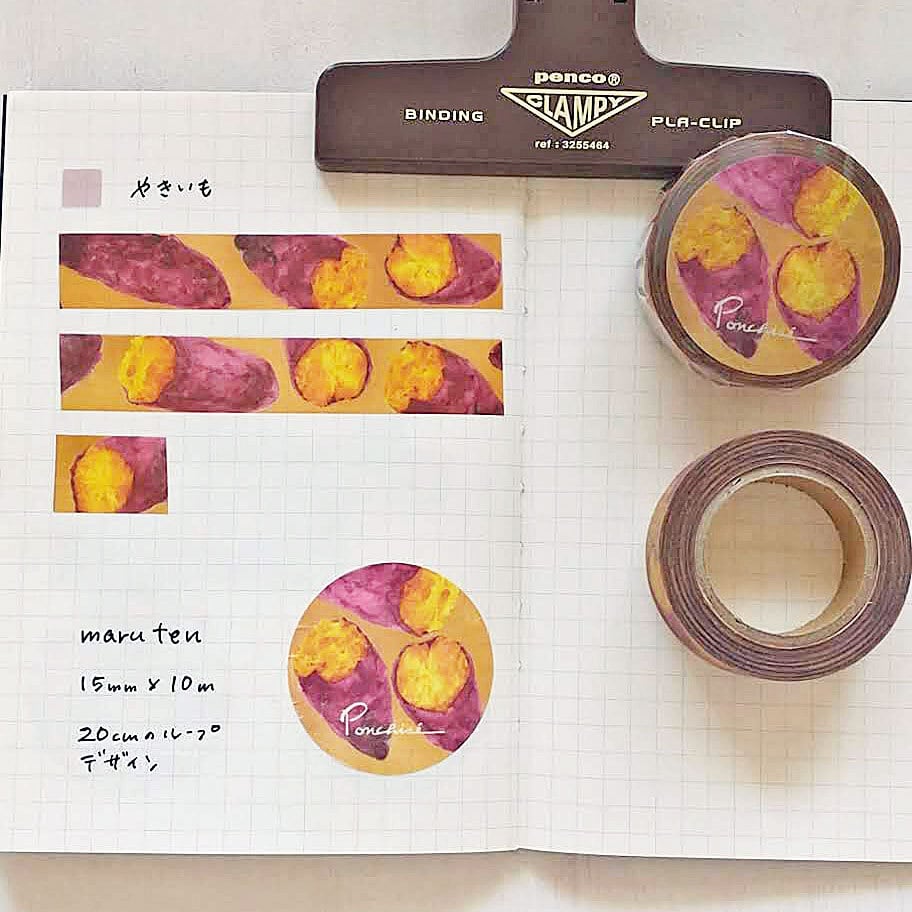 penco®
BINDING CLAMPY PLA-CLIP
ref : 3255464
やきいも
Ponchisé
maru ten
15mm × 10m
20cmのループ
デザイン
Ponchisé